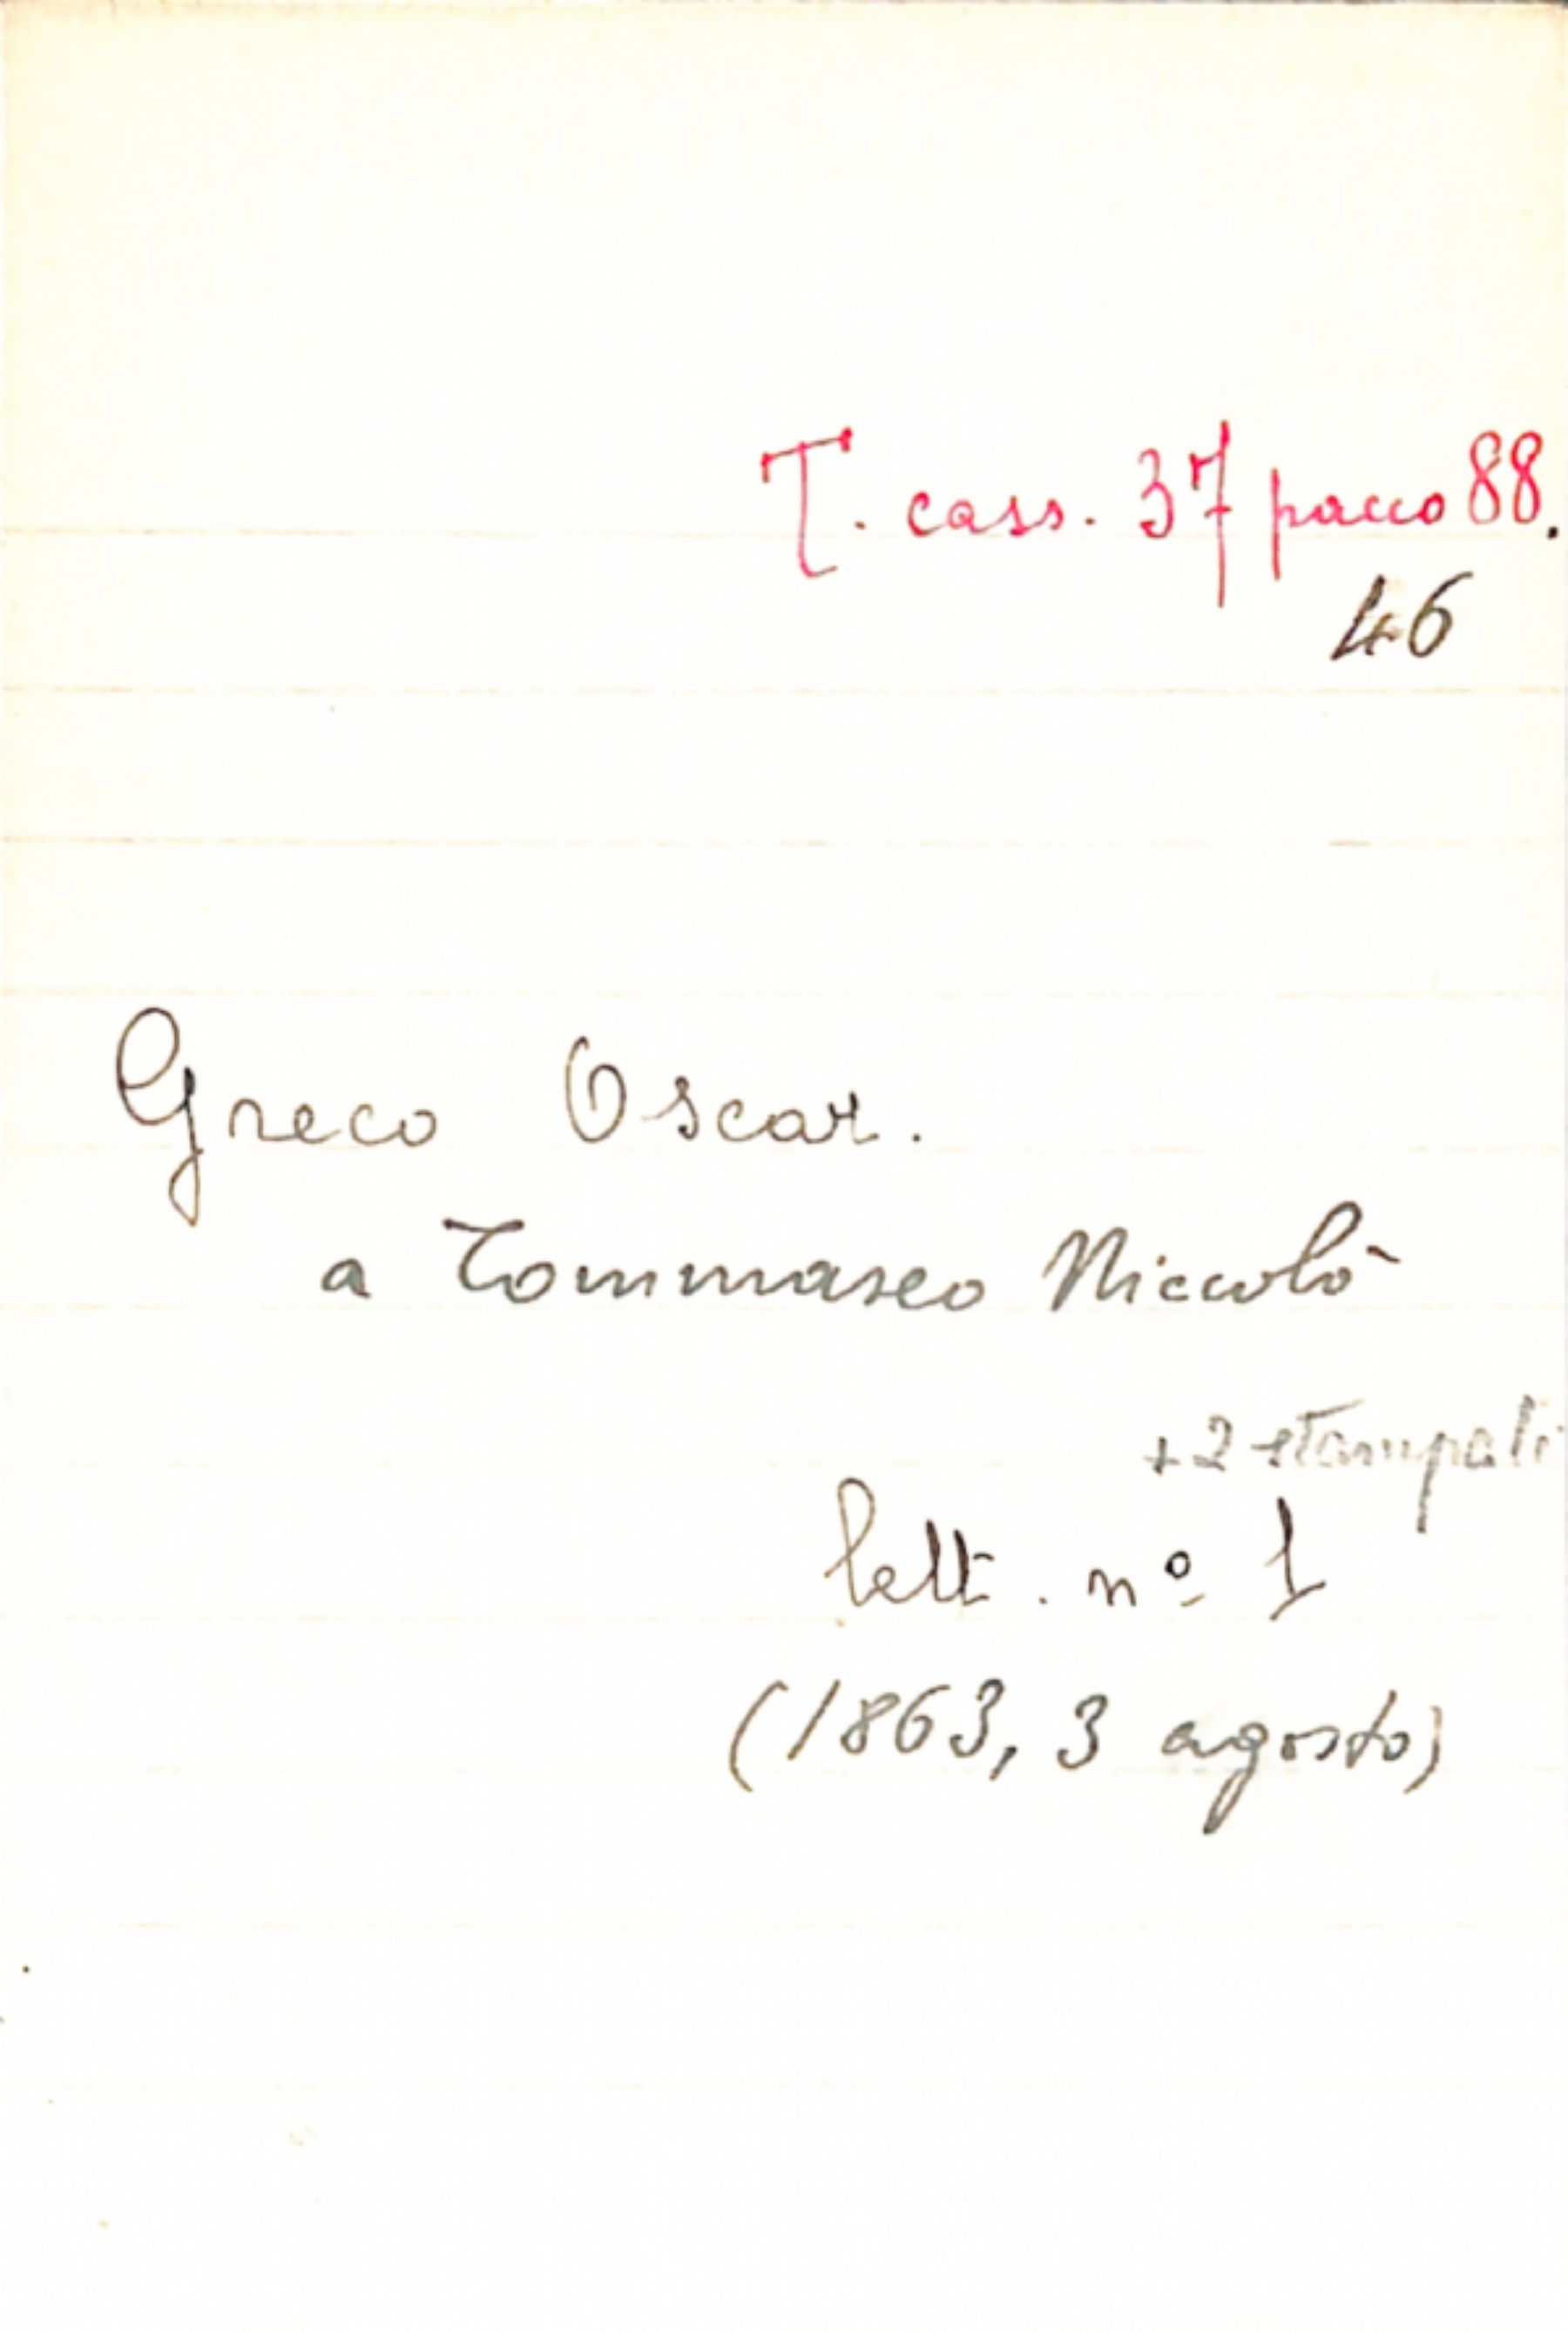 T. cass. 37 pacco 88.
46
Greco Oscar.
a Tommaseo Niccolò
+2 stampati
lett. nº 1
(1863, 3 agosto)